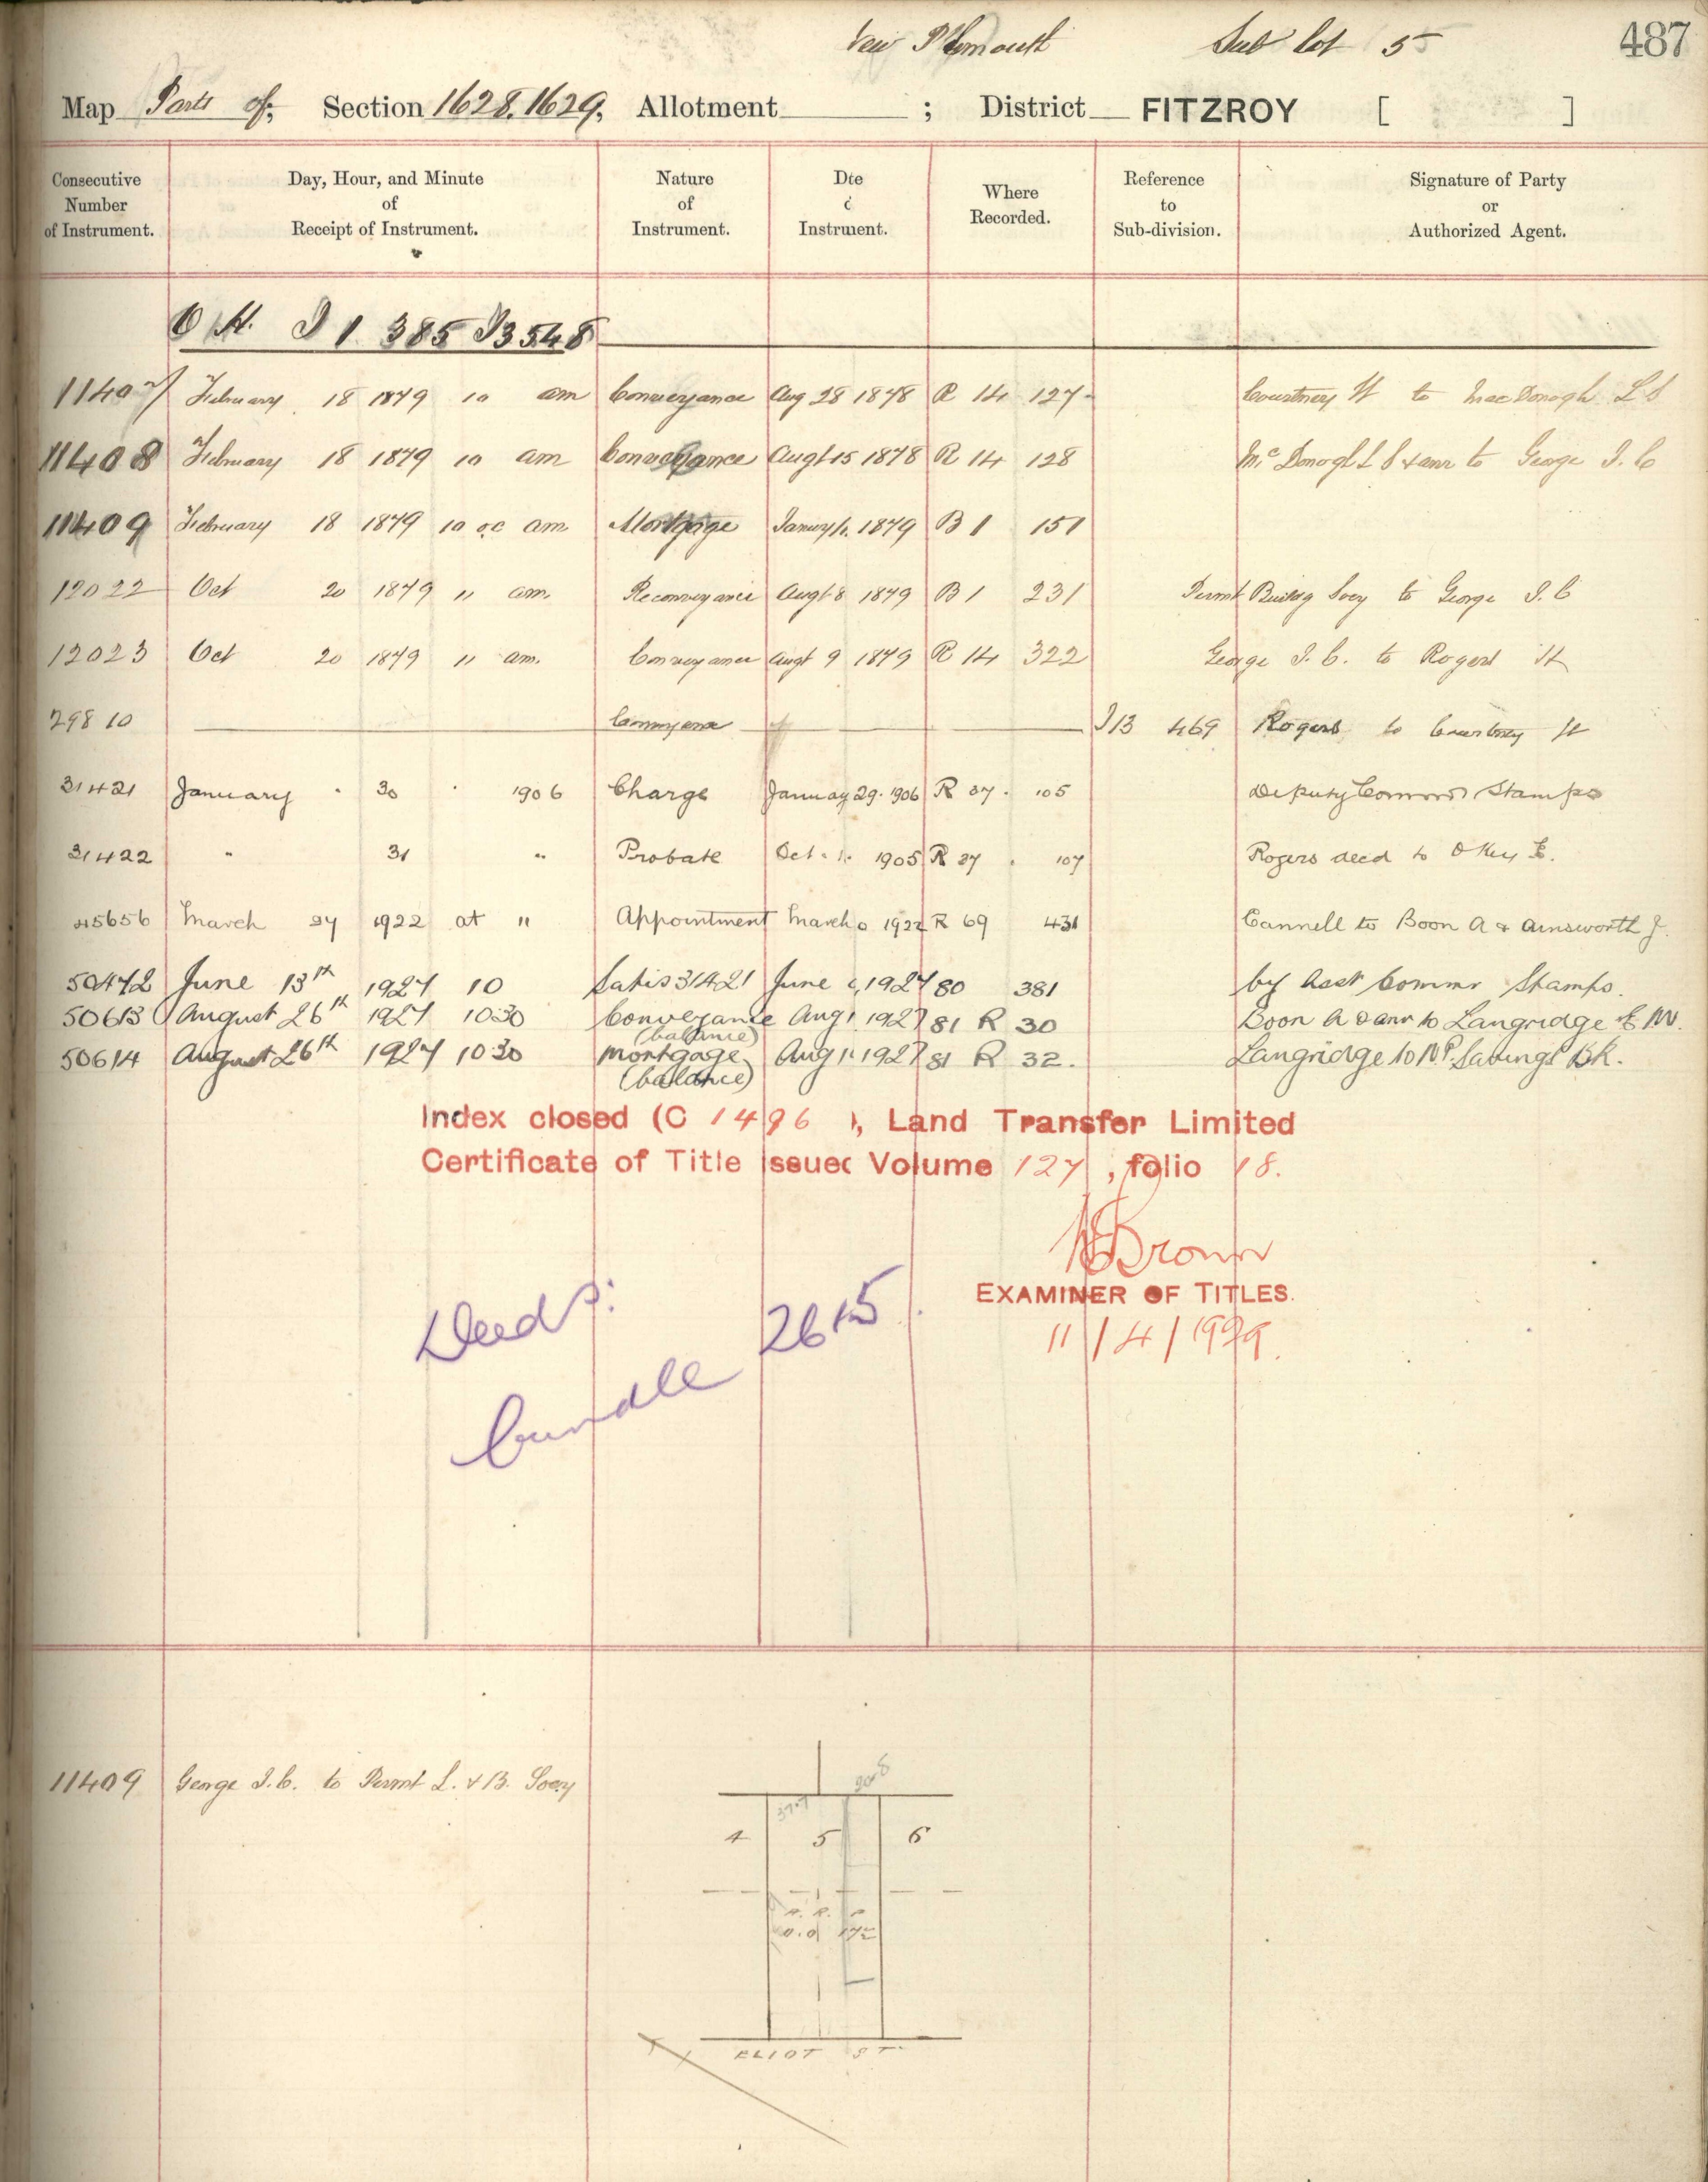 New Plymouth Sub lot 5 487
Map Parts of; Section 1628.1629, Allotment ; District FITZROY [ ]
Consecutive Number of Instrument. Day, Hour, and Minute of Receipt of Instrument. Nature of Instrument. Dte Instrument. Where Recorded. Reference to Sub-division. Signature of Party or Authorized Agent.
I 1 385 I3 548
11407 February 18 1879 10 am Conveyance Aug 28 1878 R 14 127 Courtney W to MacDonogh L S
11408 February 18 1879 10 am Conveyance Augt 15 1878 R 14 128 McDonogh L S & anr to George I. C
11409 February 18 1879 10 oc am Mortgage 1879 B 1 151
12022 Oct 20 1879 11 am. Reconveyance Augt 8 1879 B 1 231 Permt Buildg Socy to George I. C
12023 Oct 20 1879 11 am. Conveyance Augt 9 1879 R 14 322 George I. C. to Rogers H
29810 Conveyance I 13 469 Rogers to Courtney W
31421 January 30 1906 Charge January 29. 1906 R 37. 105 Deputy Commr Stamps
31422 " 31 " Probate Oct. 1905 R 37 107 Rogers decd to Okey E.
45656 March 27 1922 at 11 Appointment March 1922 R 69 431 Cannell to Boon A & Ainsworth J.
50472 June 13th 1927 10 Satis 31421 June 1927 80 381 by Asst Commr Stamps.
50613 August 26th 1927 10 30 Conveyance Aug 1 1927 81 R 30 Boon A & anr to Langridge E W.
(balance)
50614 August 26th 1927 10 30 Mortgage Aug 1 1927 81 R 32. Langridge to N.P. Savings Bk.
(balance)
Index closed (C 1496 ), Land Transfer Limited
Certificate of Title issued Volume 127, folio 18.
Brown
EXAMINER OF TITLES.
11/4/1929.
Deeds:
bundle 2615.
11409 George I. C. to Permt L. & B. Socy
37.7
4 5 6
ELIOT ST